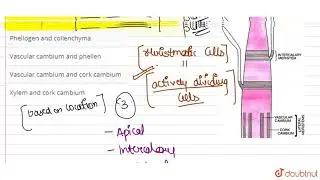 Phellogen and collenchyma
Vascular cambium and phellen
Vascular cambium and cork cambium
Xylem and cork cambium
[Meristmatic cells]
=
[actively dividing
cells]
[based on location]
3
- Apical
- Intercalary
INTERCALARY
MERISTEM
VASCULAR
CAMBIUM
CORK
CAMBIUM
doubtnut